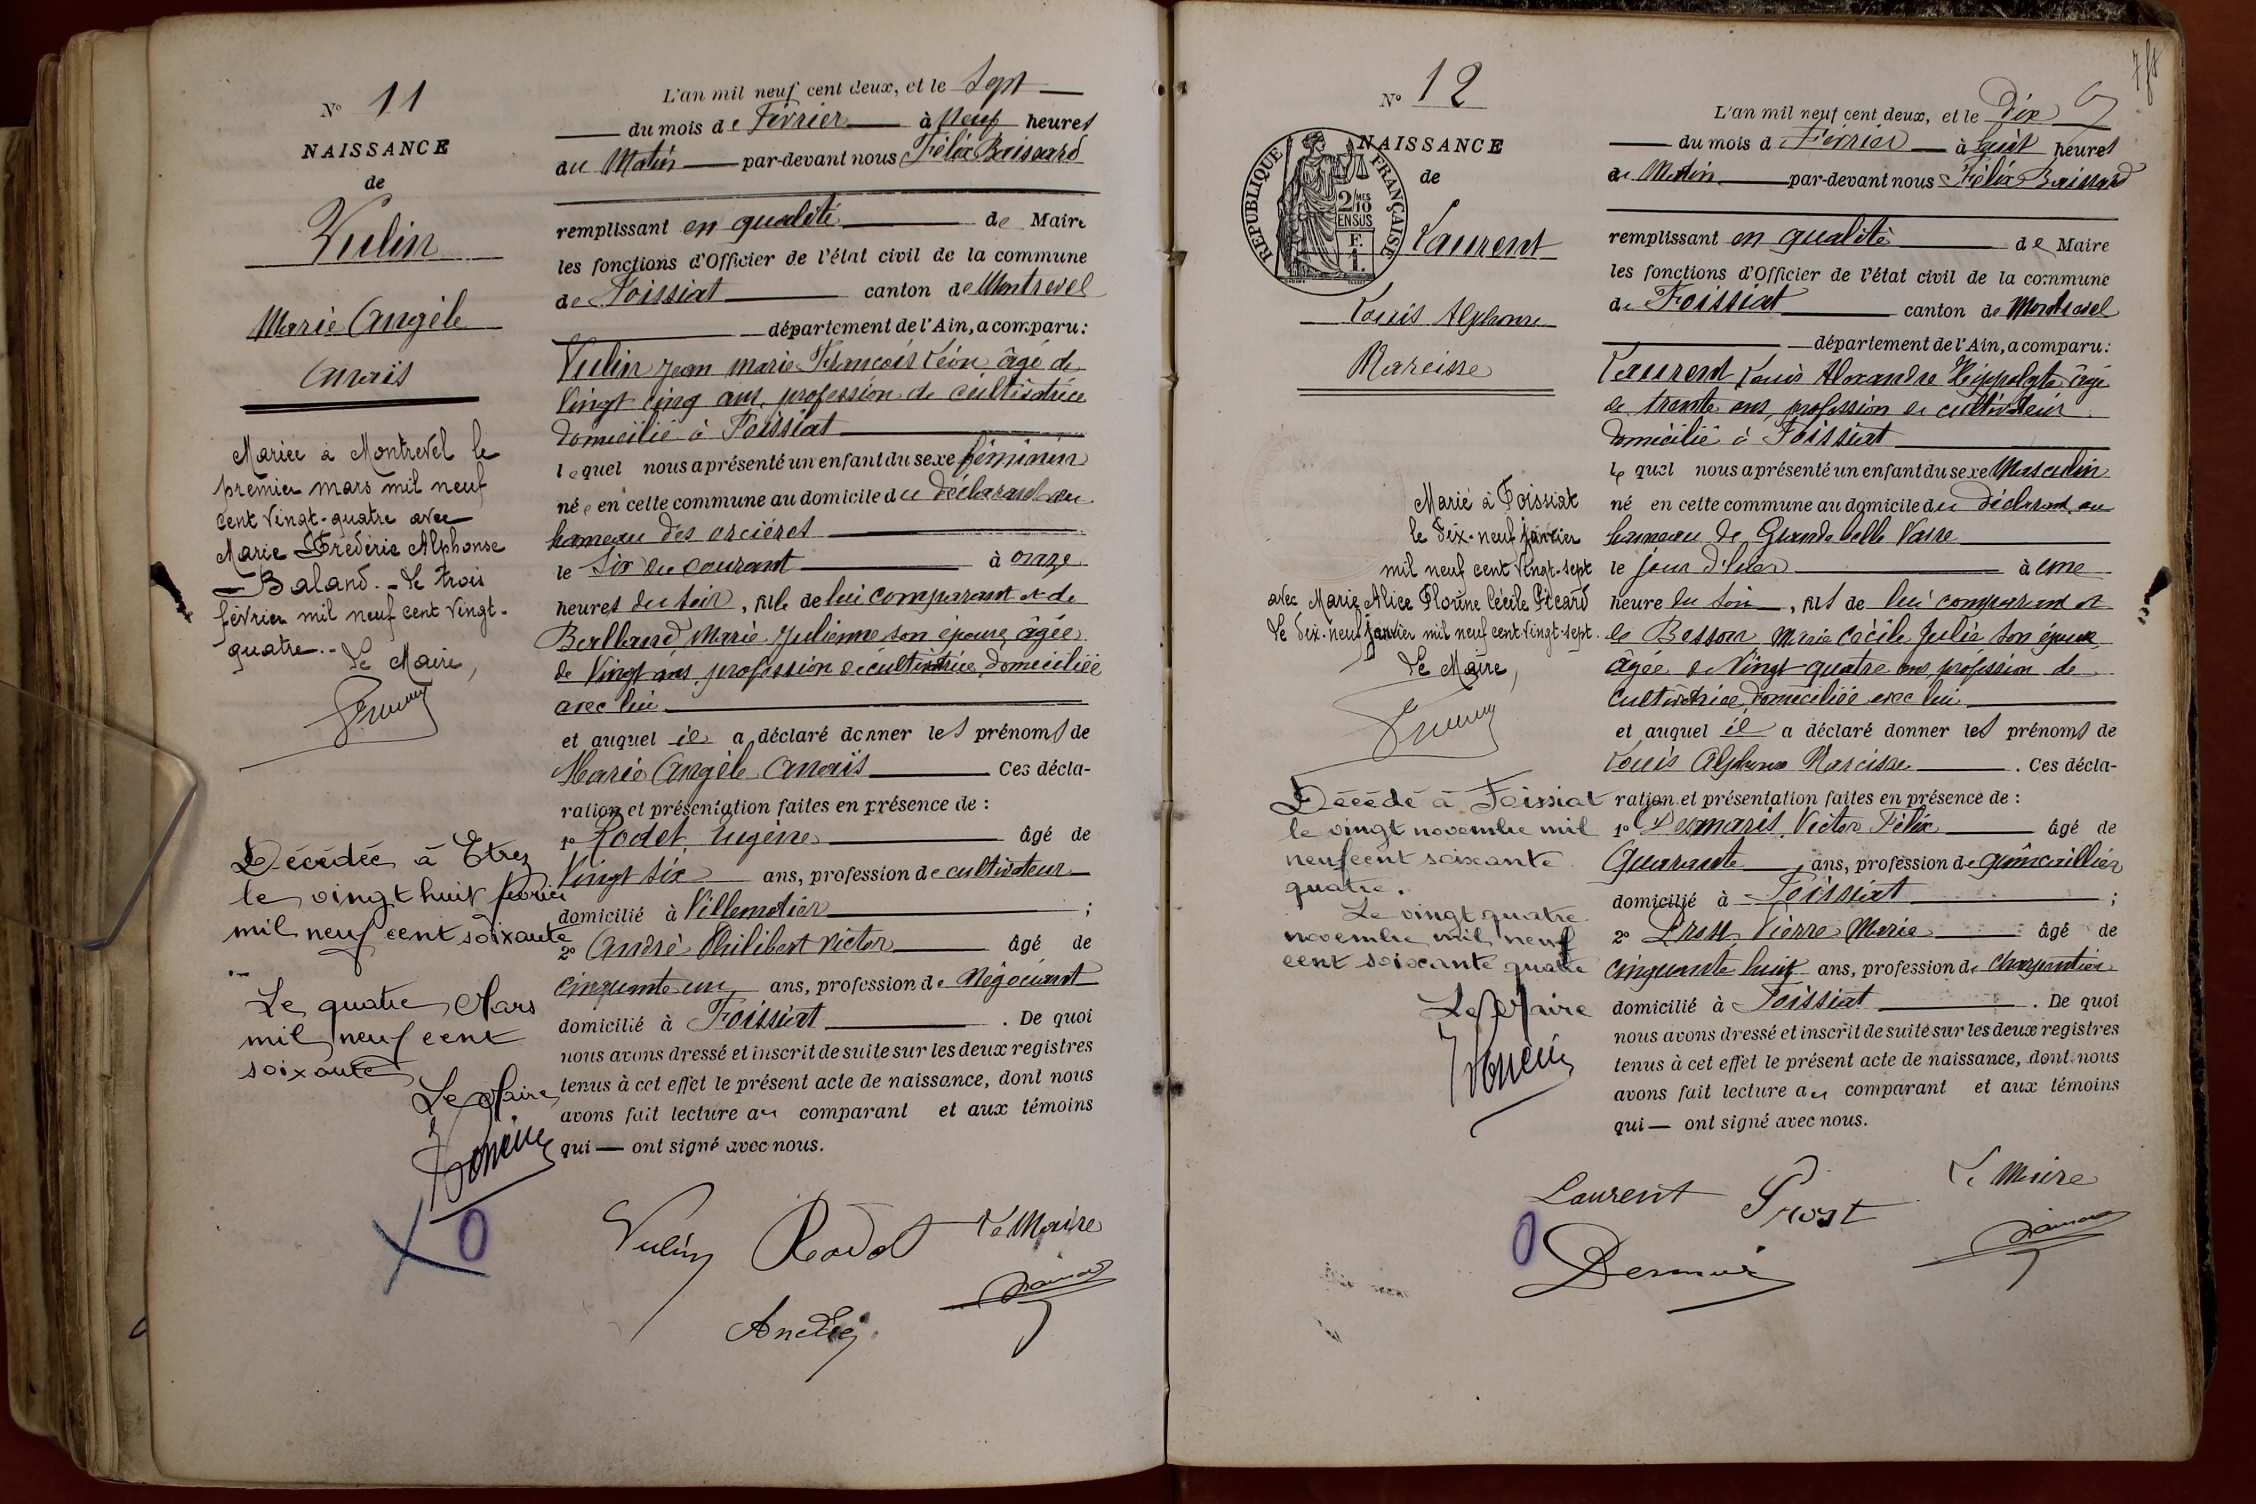 N° 11
NAISSANCE
de
Vulin
Marie Angèle
Anaïs
Mariée à Montrevel le
premier mars mil neuf
cent vingt-quatre avec
Marie Frédéric Alphonse
Baland. - Le trois
février mil neuf cent vingt-
quatre. -
Le Maire,
Décédée à Etrez
le vingt huit février
mil neuf cent soixante
Le quatre Mars
mil neuf cent
soixante
Le Maire
L'an mil neuf cent deux, et le Sept
du mois de Février à Neuf heures
du Matin par-devant nous Félix Boissard
remplissant en qualité de Maire
les fonctions d'Officier de l'état civil de la commune
de Foissiat canton de Montrevel
département de l'Ain, a comparu:
Vulin Jean Marie François Léon, âgé de
Vingt cinq ans, profession de cultivatrice
domicilié à Foissiat
lequel nous a présenté un enfant du sexe féminin
née en cette commune au domicile du déclarant au
hameau des orcières
le Six du courant à onze
heures du soir, fille de lui comparant et de
Balland Marie Julienne son épouse, âgée
de Vingt ans, profession de cultivatrice, domiciliée
avec lui
et auquel il a déclaré donner les prénoms de
Marie Angèle Anaïs Ces décla-
ration et présentation faites en présence de :
1° Rodet Eugène âgé de
Vingt six ans, profession de cultivateur
domicilié à Villemotier ;
2° André Philibert Victor âgé de
cinquante un ans, profession de Négociant
domicilié à Foissiat . De quoi
nous avons dressé et inscrit de suite sur les deux registres
tenus à cet effet le présent acte de naissance, dont nous
avons fait lecture au comparant et aux témoins
qui — ont signé avec nous.
Vulin Rodet Le Maire
André
N° 12
NAISSANCE
de
RÉPUBLIQUE FRANÇAISE
2/10
EN SUS
Laurent
Louis Alphonse
Narcisse
Marié à Foissiat
le Dix-neuf janvier
mil neuf cent vingt-sept
avec Marie Alice Cécile Picard
Le dix-neuf janvier mil neuf cent vingt-sept.
Le Maire,
Décédé à Foissiat
le vingt novembre mil
neuf cent soixante
quatre.
Le vingt quatre
novembre mil neuf
cent soixante quatre
Le Maire
L'an mil neuf cent deux, et le Dix
du mois de Février à huit heures
du Matin par-devant nous Félix Boissard
remplissant en qualité de Maire
les fonctions d'Officier de l'état civil de la commune
de Foissiat canton de Montrevel
département de l'Ain, a comparu:
Laurent Louis Alexandre Hippolyte âgé
de trente ans, profession de cultivateur
domicilié à Foissiat
lequel nous a présenté un enfant du sexe Masculin
né en cette commune au domicile du déclarant au
hameau de Grande belle Vavre
le jour d'hier à une
heure du soir, fils de lui comparant et
de Besson Marie Cécile Julie son épouse,
âgée de Vingt quatre ans, profession de
cultivatrice, domiciliée avec lui
et auquel il a déclaré donner les prénoms de
Louis Alphonse Narcisse . Ces décla-
ration et présentation faites en présence de :
1° Desmaris Victor Félix âgé de
Quarante ans, profession de quincaillier
domicilié à Foissiat ;
2° Prost Pierre Marie âgé de
cinquante huit ans, profession de charpentier
domicilié à Foissiat . De quoi
nous avons dressé et inscrit de suite sur les deux registres
tenus à cet effet le présent acte de naissance, dont nous
avons fait lecture au comparant et aux témoins
qui — ont signé avec nous.
Laurent Prost Le Maire